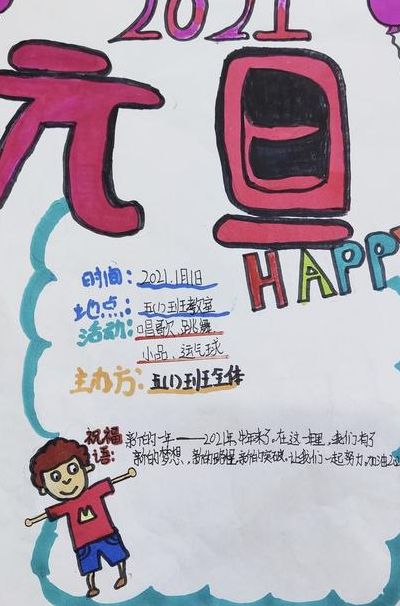 2021
元旦
HAPP
时间：2021.1月1日
地点：五(1)班教室
活动：唱歌、跳舞
小品、运气球
主办方：五(1)班全体
祝福 新的一年——2021年，牛年来了。在这一年里，我们有了
语：新的梦想、新的晴程，新的突破，让我们一起努力，加油